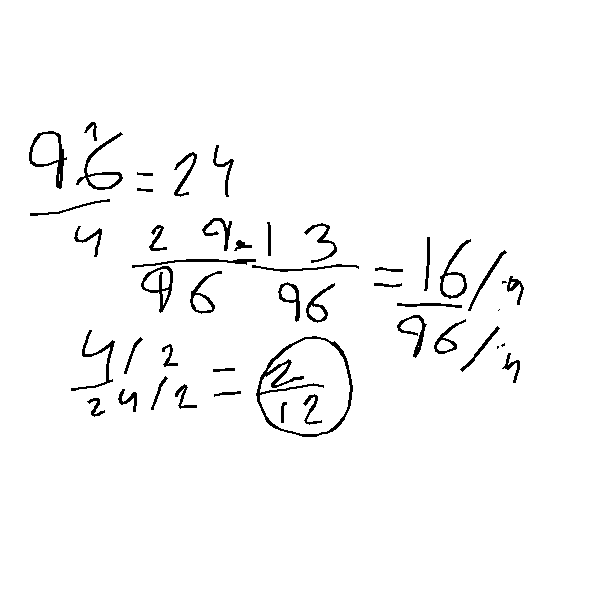 96/4 = 24
29/96 - 13/96 = 16/:4 / 96/:4
4/2 / 24/2 = 2/12